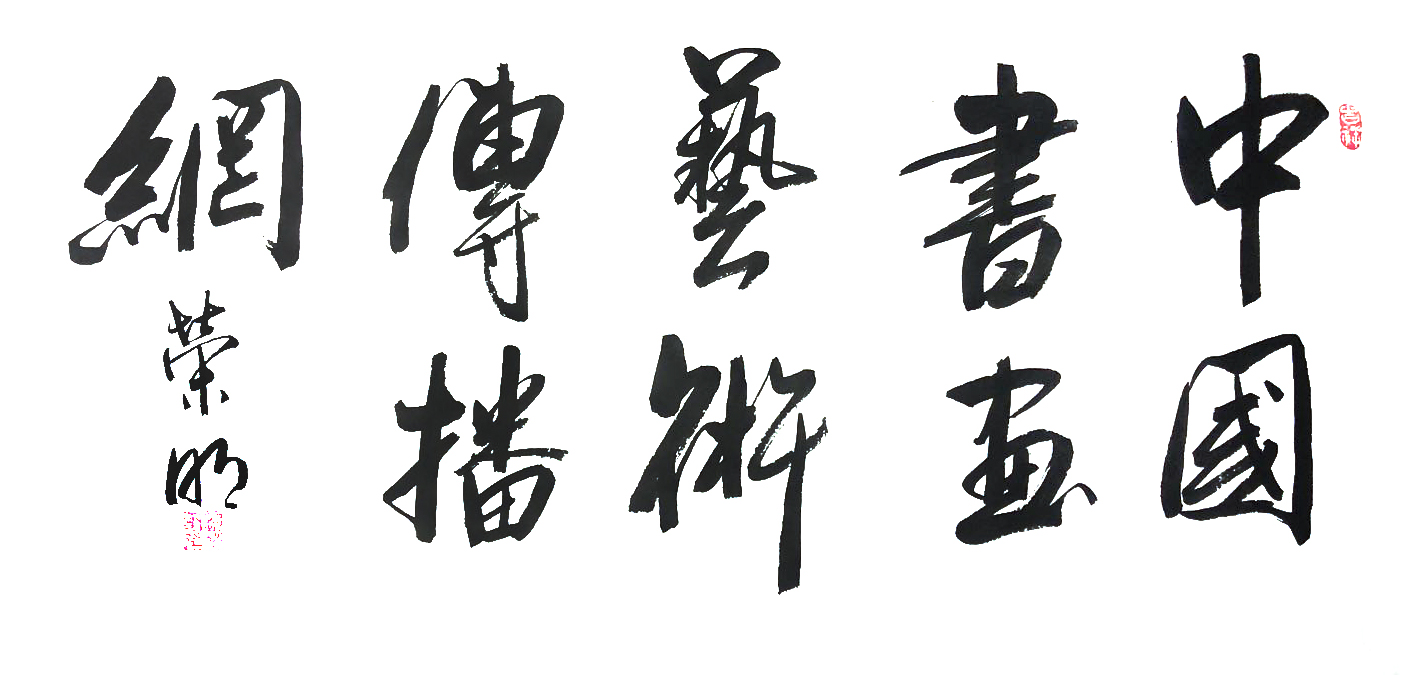 中國
書畫
藝術
傳播
網
榮明